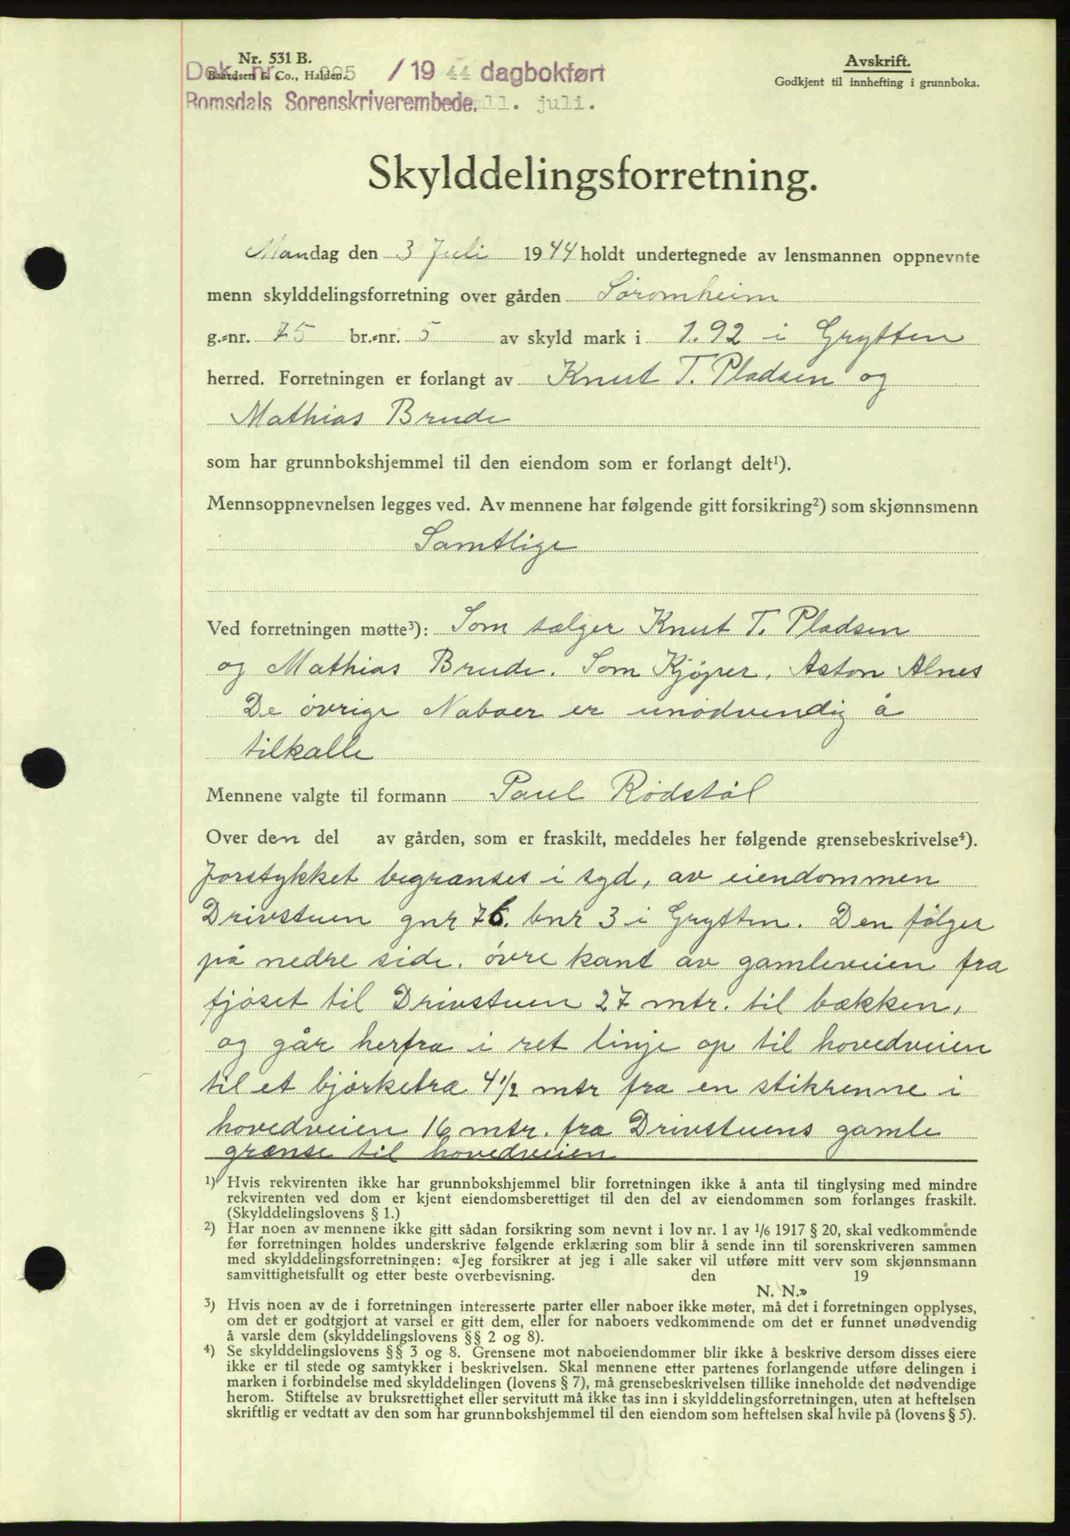 Nr. 531 B.
Baardsen & Co., Halden.
Dok. nr. 995 /1944 dagbokført
Romsdals Sorenskriverembede. 11. juli.
Avskrift.
Godkjent til innhefting i grunnboka.
Skylddelingsforretning.
Mandag den 3 Juli 1944 holdt undertegnede av lensmannen oppnevnte
menn skylddelingsforretning over gården Søromheim
g.-nr. 75 br.-nr. 5 av skyld mark i 1.92 i Grytten
herred. Forretningen er forlangt av Knut T. Pladsen og
Mathias Brude
som har grunnbokshjemmel til den eiendom som er forlangt delt¹).
Mennsoppnevnelsen legges ved. Av mennene har følgende gitt forsikring²) som skjønnsmenn
Samtlige
Ved forretningen møtte³): Som sælger Knut T. Pladsen
og Mathias Brude. Som Kjøper, Aston Alnes
De øvrige Naboer er unødvendig å
tilkalle
Mennene valgte til formann Paul Rødstøl
Over den del av gården, som er fraskilt, meddeles her følgende grensebeskrivelse⁴).
Jorstykket begrænses i syd, av eiendommen
Drivstuen gnr 76. bnr 3 i Grytten. Den følger
på nedre side. øvre kant av gamleveien fra
fjøset til Drivstuen 27 mtr. til bækken,
og går herfra i ret linje op til hovedveien
til et bjørketræ 4½ mtr fra en stikrenne i
hovedveien 16 mtr. fra Drivstuens gamle
grænse til hovedveien
¹) Hvis rekvirenten ikke har grunnbokshjemmel blir forretningen ikke å anta til tinglysing med mindre
rekvirenten ved dom er kjent eiendomsberettiget til den del av eiendommen som forlanges fraskilt.
(Skylddelingslovens § 1.)
²) Har noen av mennene ikke gitt sådan forsikring som nevnt i lov nr. 1 av 1/6 1917 § 20, skal vedkommende
før forretningen holdes underskrive følgende erklæring som blir å sende inn til sorenskriveren sammen
med skylddelingsforretningen: «Jeg forsikrer at jeg i alle saker vil utføre mitt verv som skjønnsmann
samvittighetsfullt og etter beste overbevisning. den 19
N. N.»
³) Hvis noen av de i forretningen interesserte parter eller naboer ikke møter, må det i forretningen opplyses,
om det er godtgjort at varsel er gitt dem, eller for naboers vedkommende om det er funnet unødvendig
å varsle dem (skylddelingslovens §§ 2 og 8).
⁴) Se skylddelingslovens §§ 3 og 8. Grensene mot naboeiendommer blir ikke å beskrive dersom disses eiere
ikke er til stede og samtykker i beskrivelsen. Skal mennene etter partenes forlangende utføre delingen i
marken i forbindelse med skylddelingen (lovens § 7), må grensebeskrivelsen tillike inneholde det nødvendige
herom. Stiftelse av bruksrettighet eller servitutt må ikke tas inn i skylddelingsforretningen, uten at heftelsen
skriftlig er vedtatt av den som har grunnbokshjemmel til den eiendom som heftelsen skal hvile på (lovens § 5).